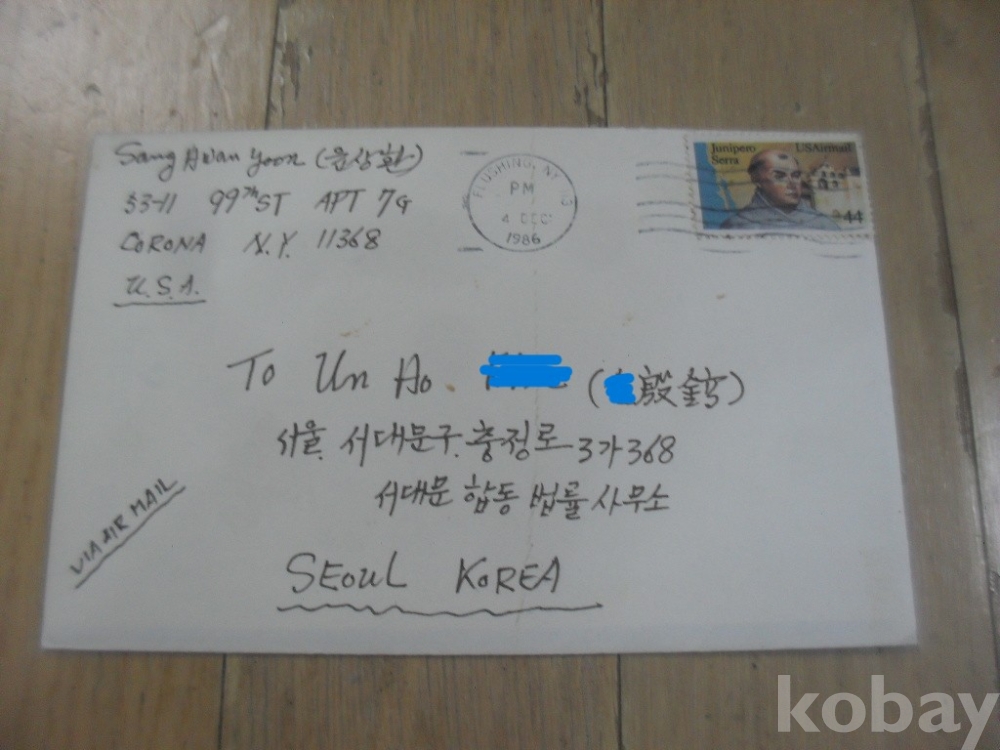 Sang Hwan Yoon (윤상환)
53-11 99th ST APT 7G
CORONA N.Y. 11368
U.S.A.
FLUSHING, NY
PM
4 DEC
1986
Junipero Serra
USAirmail
44
To Un Ho
(殷鎬)
서울. 서대문구. 충정로 3가 368
서대문 합동 법률사무소
VIA AIR MAIL
SEOUL KOREA
kobay